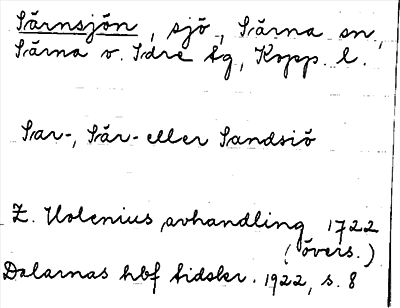 Särnsjön, sjö, Särna sn,
Särna o. Idre tg, Kopp. l.
Sar-, Sär- eller Sandsiö
Z. Holenius avhandling 1722
(övers.)
Dalarnas hbf tidskr. 1922, s. 8